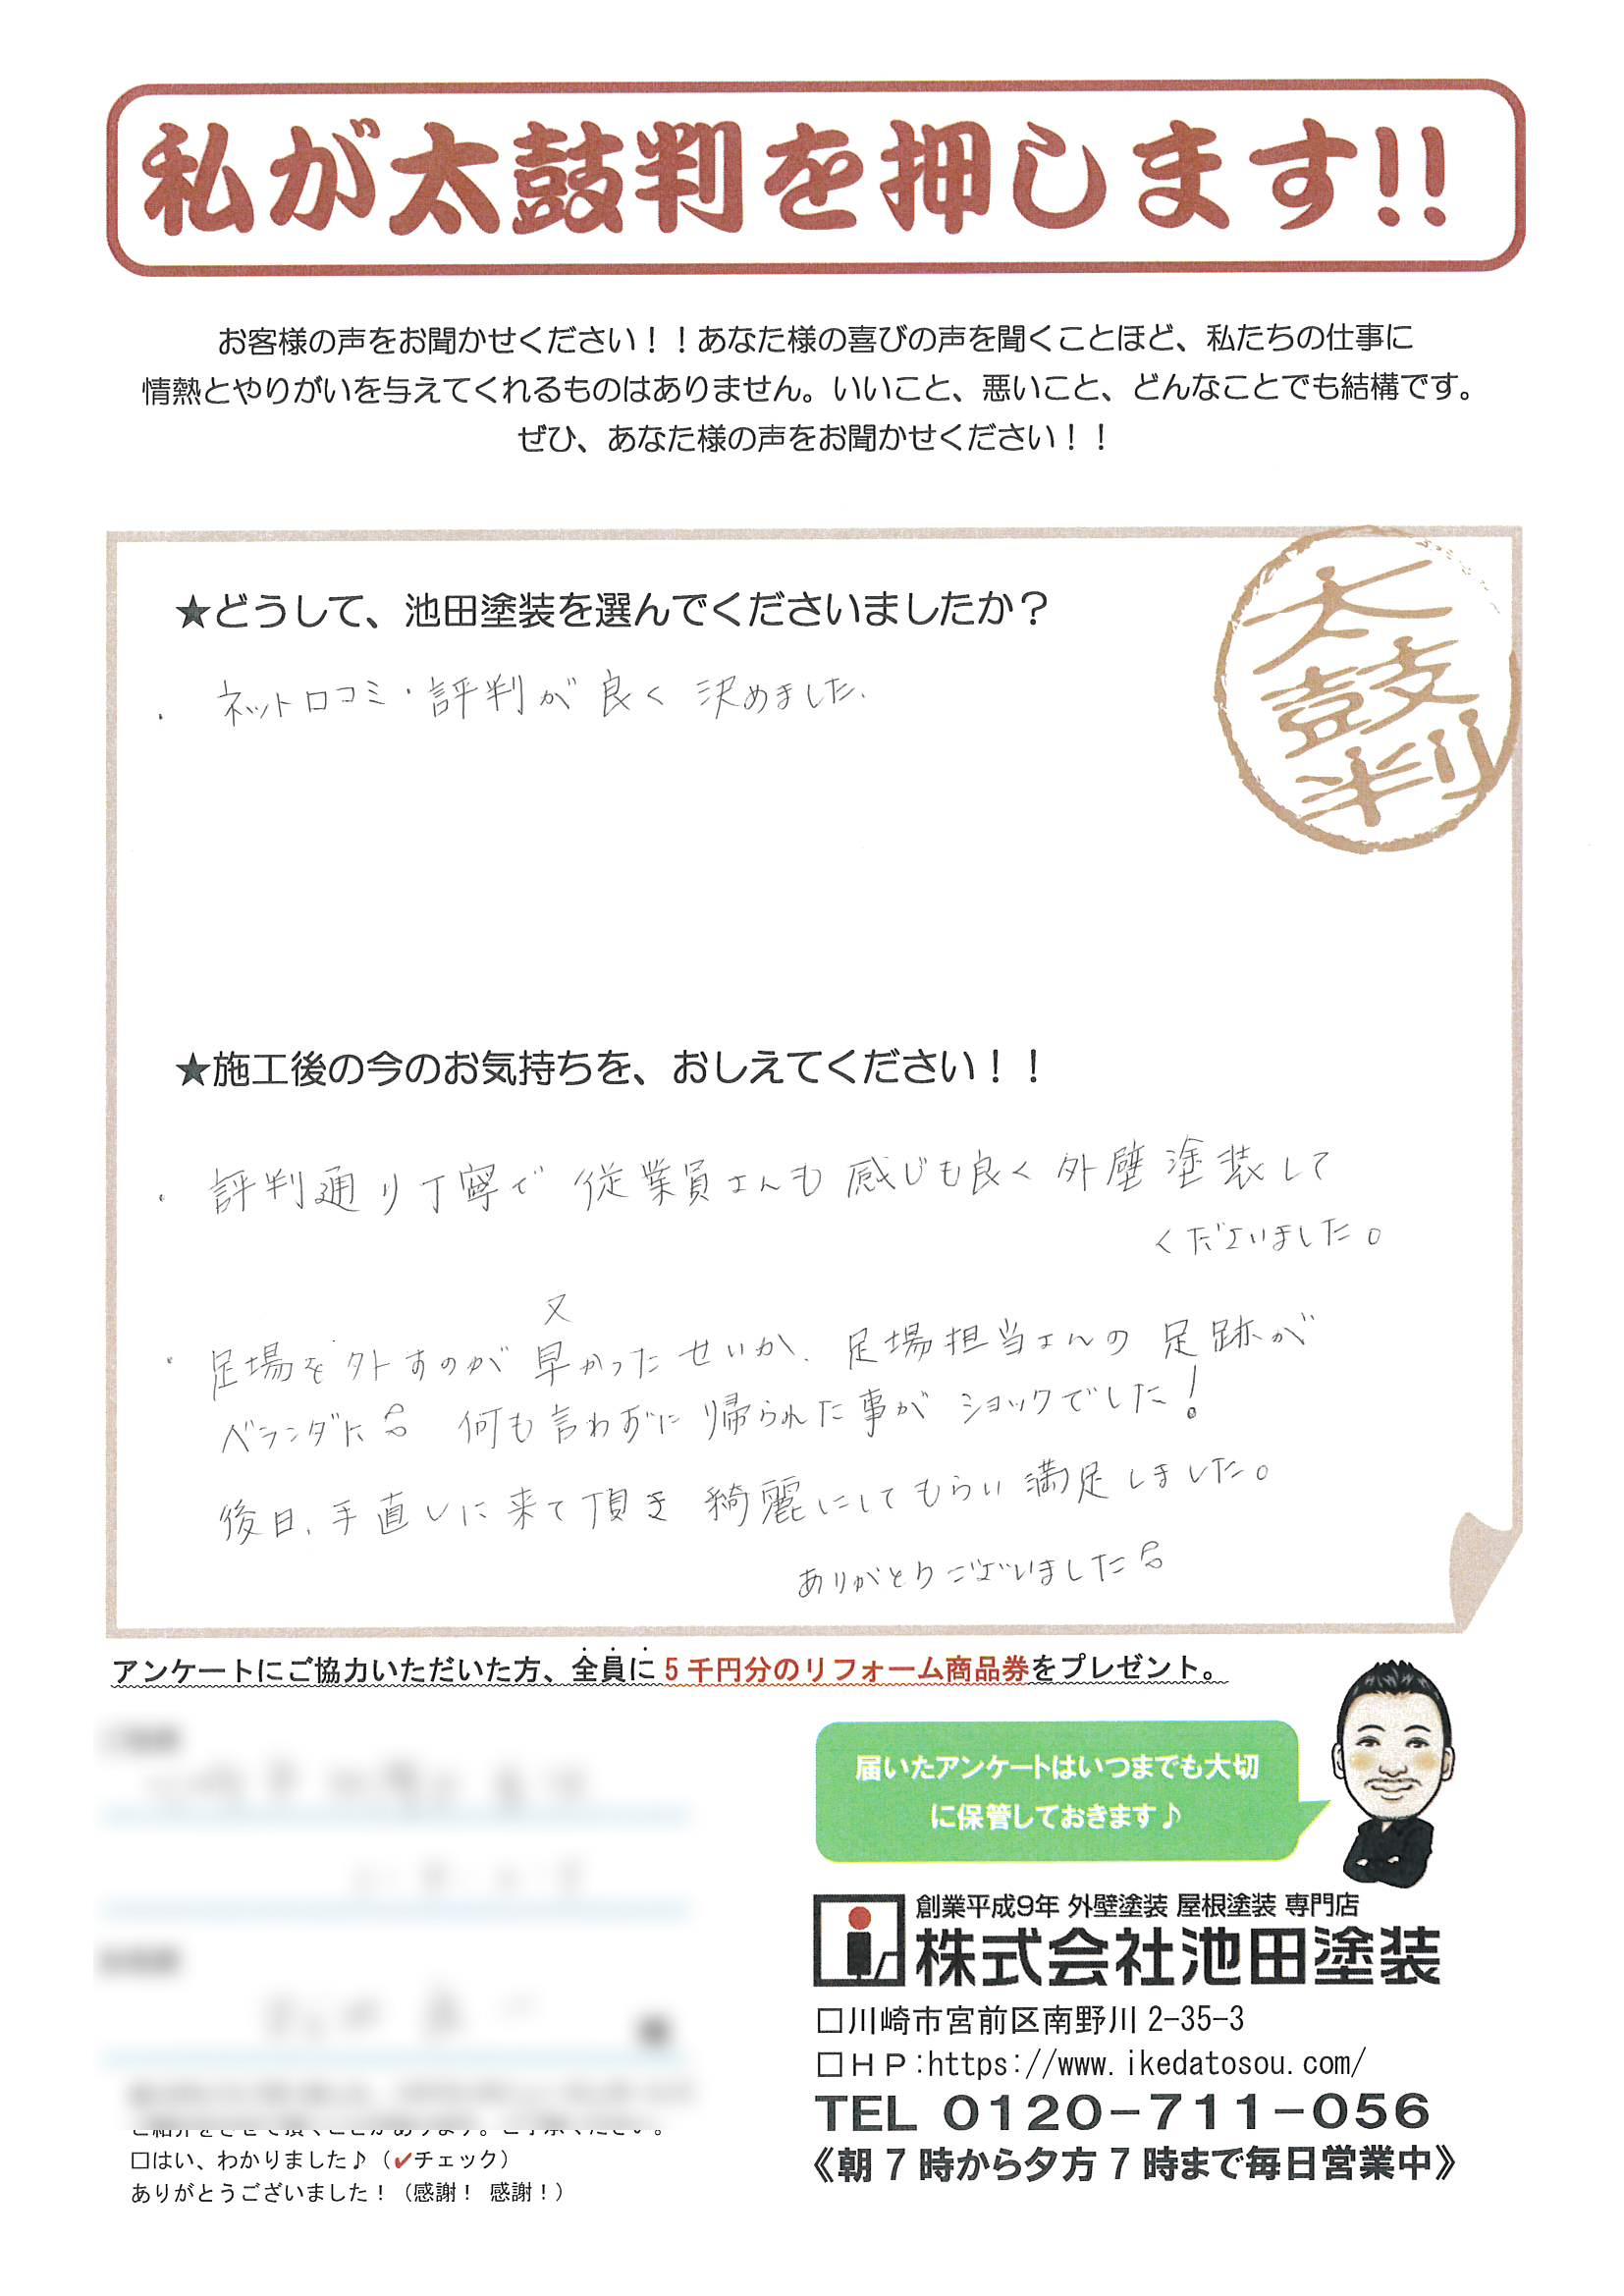 私が太鼓判を押します!!
お客様の声をお聞かせください！！あなた様の喜びの声を聞くことほど、私たちの仕事に
情熱とやりがいを与えてくれるものはありません。いいこと、悪いこと、どんなことでも結構です。
ぜひ、あなた様の声をお聞かせください！！
太鼓判
★どうして、池田塗装を選んでくださいましたか？
・ ネット口コミ・評判が良く決めました.
★施工後の今のお気持ちを、おしえてください！！
・ 評判通り丁寧で従業員さんも感じも良く外壁塗装して
くださいました。
又
・ 足場を外すのが早かったせいか、足場担当さんの足跡が
ベランダに 何も言わずに帰られた事がショックでした！
後日、手直しに来て頂き綺麗にしてもらい満足しました。
ありがとうございました
アンケートにご協力いただいた方、全員に5千円分のリフォーム商品券をプレゼント。
届いたアンケートはいつまでも大切
に保管しておきます♪
創業平成9年 外壁塗装 屋根塗装 専門店
株式会社池田塗装
□川崎市宮前区南野川 2-35-3
□ＨＰ:https://www.ikedatosou.com/
TEL 0120-711-056
《朝7時から夕方7時まで毎日営業中》
□はい、わかりました♪（✔チェック）
ありがとうございました！（感謝！ 感謝！）